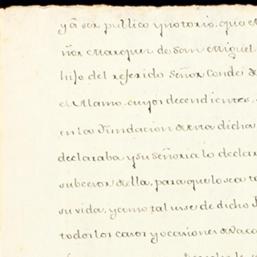 ya ser publico y notorio, que el
ñor Marques de San Miguel
hijo del referido Señor Conde de
el Alamo, cuyos decendientes,
en la Fundacion de esta dicha
declaraba y su señoria lo declar
subcesor della, para que lo sea t
su vida, y como tal use de dicho
todos los casos y ocaciones de vaca